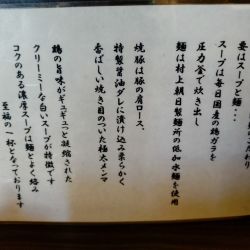 要はスープと麺・・・
スープは毎日国産の鶏ガラを
圧力釜で炊き出し
麺は村上朝日製麺所の低加水麺を使用
焼豚は豚の肩ロース、
特製醤油ダレに漬け込み柔らかく
香ばしい焼き目のついた極太メンマ
鶏の旨味がギュギュっと凝縮された
クリーミーな白いスープが特徴です
コクのある濃厚スープは麺とよく絡み
至福の一杯となっております